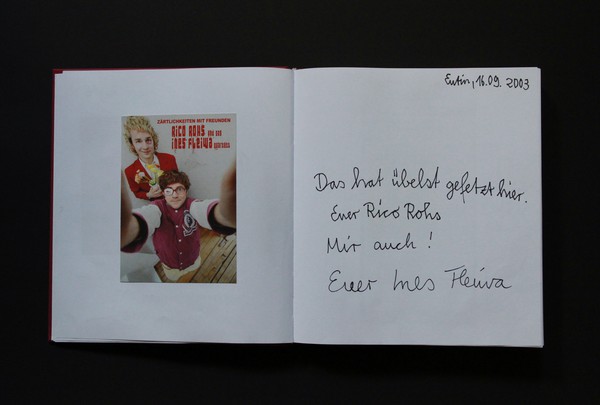 ZÄRTLICHKEITEN MIT FREUNDEN
RICO ROHS UND DAS
INES FLEIWA
Eutin, 16.09. 2003
Das hat übelst gefetzt hier.
Euer Rico Rohs
Mir auch!
Euer Ines Fleiwa